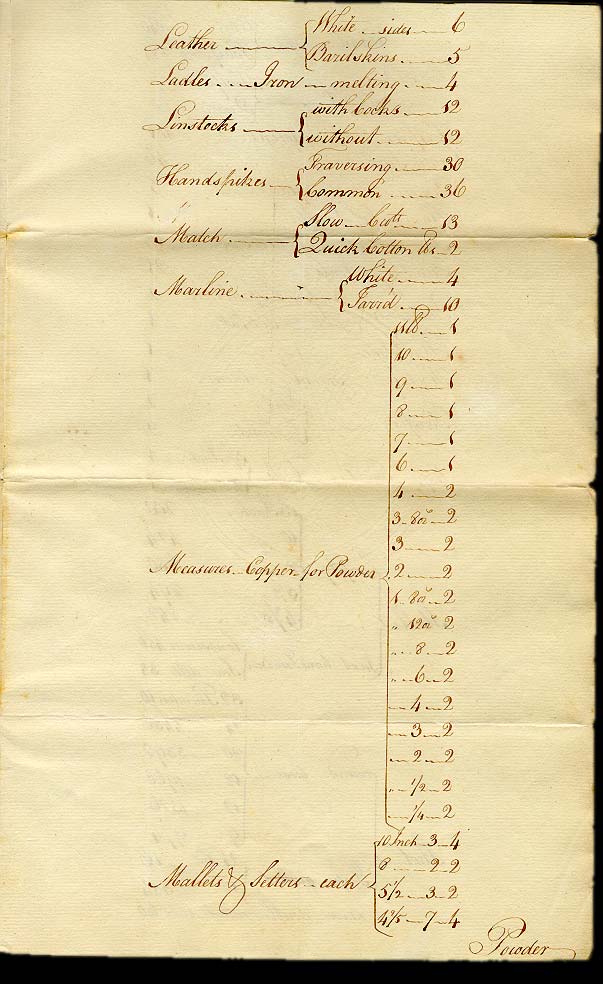 Leather { White sides 6
Barilskins 5
Ladles Iron melting 4
Linstocks { with Cocks 12
without 12
Handspikes { Traversing 30
Common 36
Match { Slow Cwt 13
Quick Cotton lbs 2
Marline { White 4
Tarr'd 10
Measures Copper for Powder { 11 lb 1
10 1
9 1
8 1
7 1
6 1
4 2
3 8oz 2
3 2
2 2
1 8oz 2
" 12oz 2
" 8 2
" 6 2
4 2
3 2
2 2
" 1/2 2
1/4 2
Mallets & Setters each { 10 Inch 3 4
8 2 2
5 1/2 3 2
4 2/5 7 4
Powder